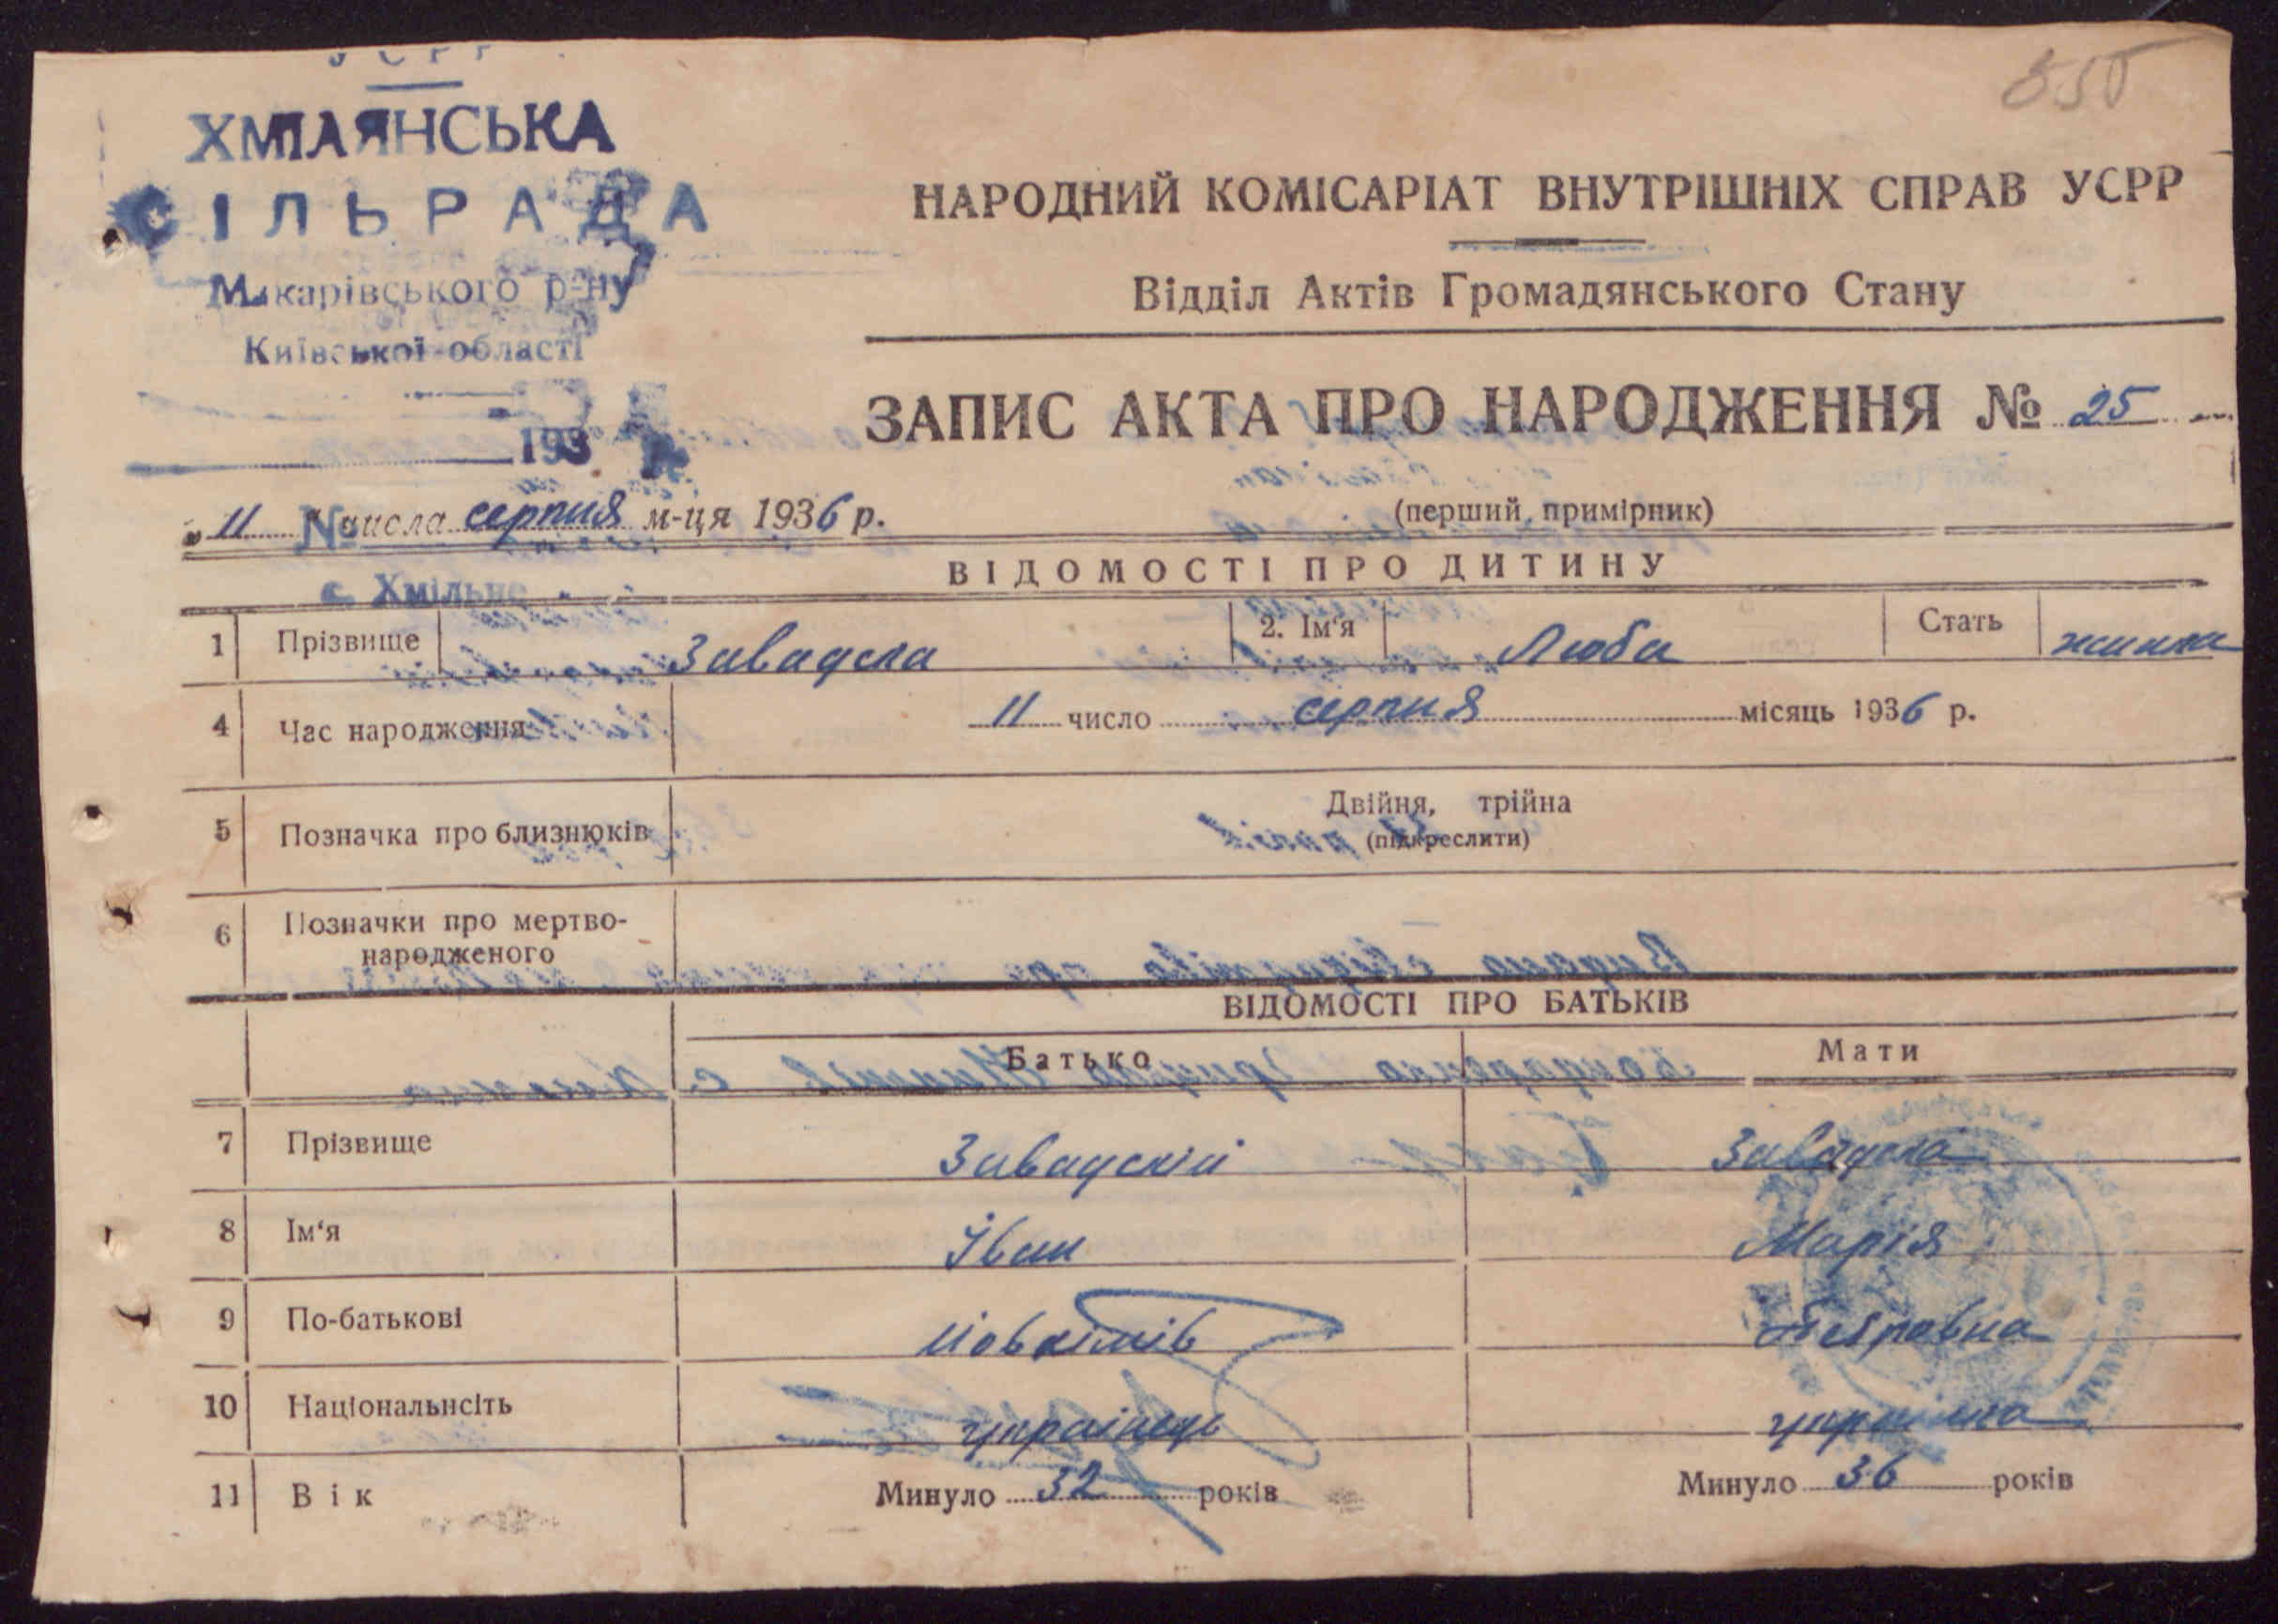 УСРР
ХМІЛЯНСЬКА
СІЛЬРАДА
Макарівського р-ну
Київської області
193
№
с. Хмільне
550
НАРОДНИЙ КОМІСАРІАТ ВНУТРІШНІХ СПРАВ УСРР
Відділ Актів Громадянського Стану
ЗАПИС АКТА ПРО НАРОДЖЕННЯ № 25
„ 11 " числа серпня м-ця 1936 р.
(перший примірник)
ВІДОМОСТІ ПРО ДИТИНУ
1 Прізвище Завадска 2. Ім'я Люба Стать жінка
4 Час народження 11 число серпня місяць 1936 р.
5 Позначка про близнюків Двійня, трійна
(підкреслити)
6 Позначки про мертво-
народженого
ВІДОМОСТІ ПРО БАТЬКІВ
Батько Мати
7 Прізвище Завадскій Завадска
8 Ім'я Іван Марія
9 По-батькові Петровна
10 Національнсіть українець українка
11 Вік Минуло 32 років Минуло 36 років